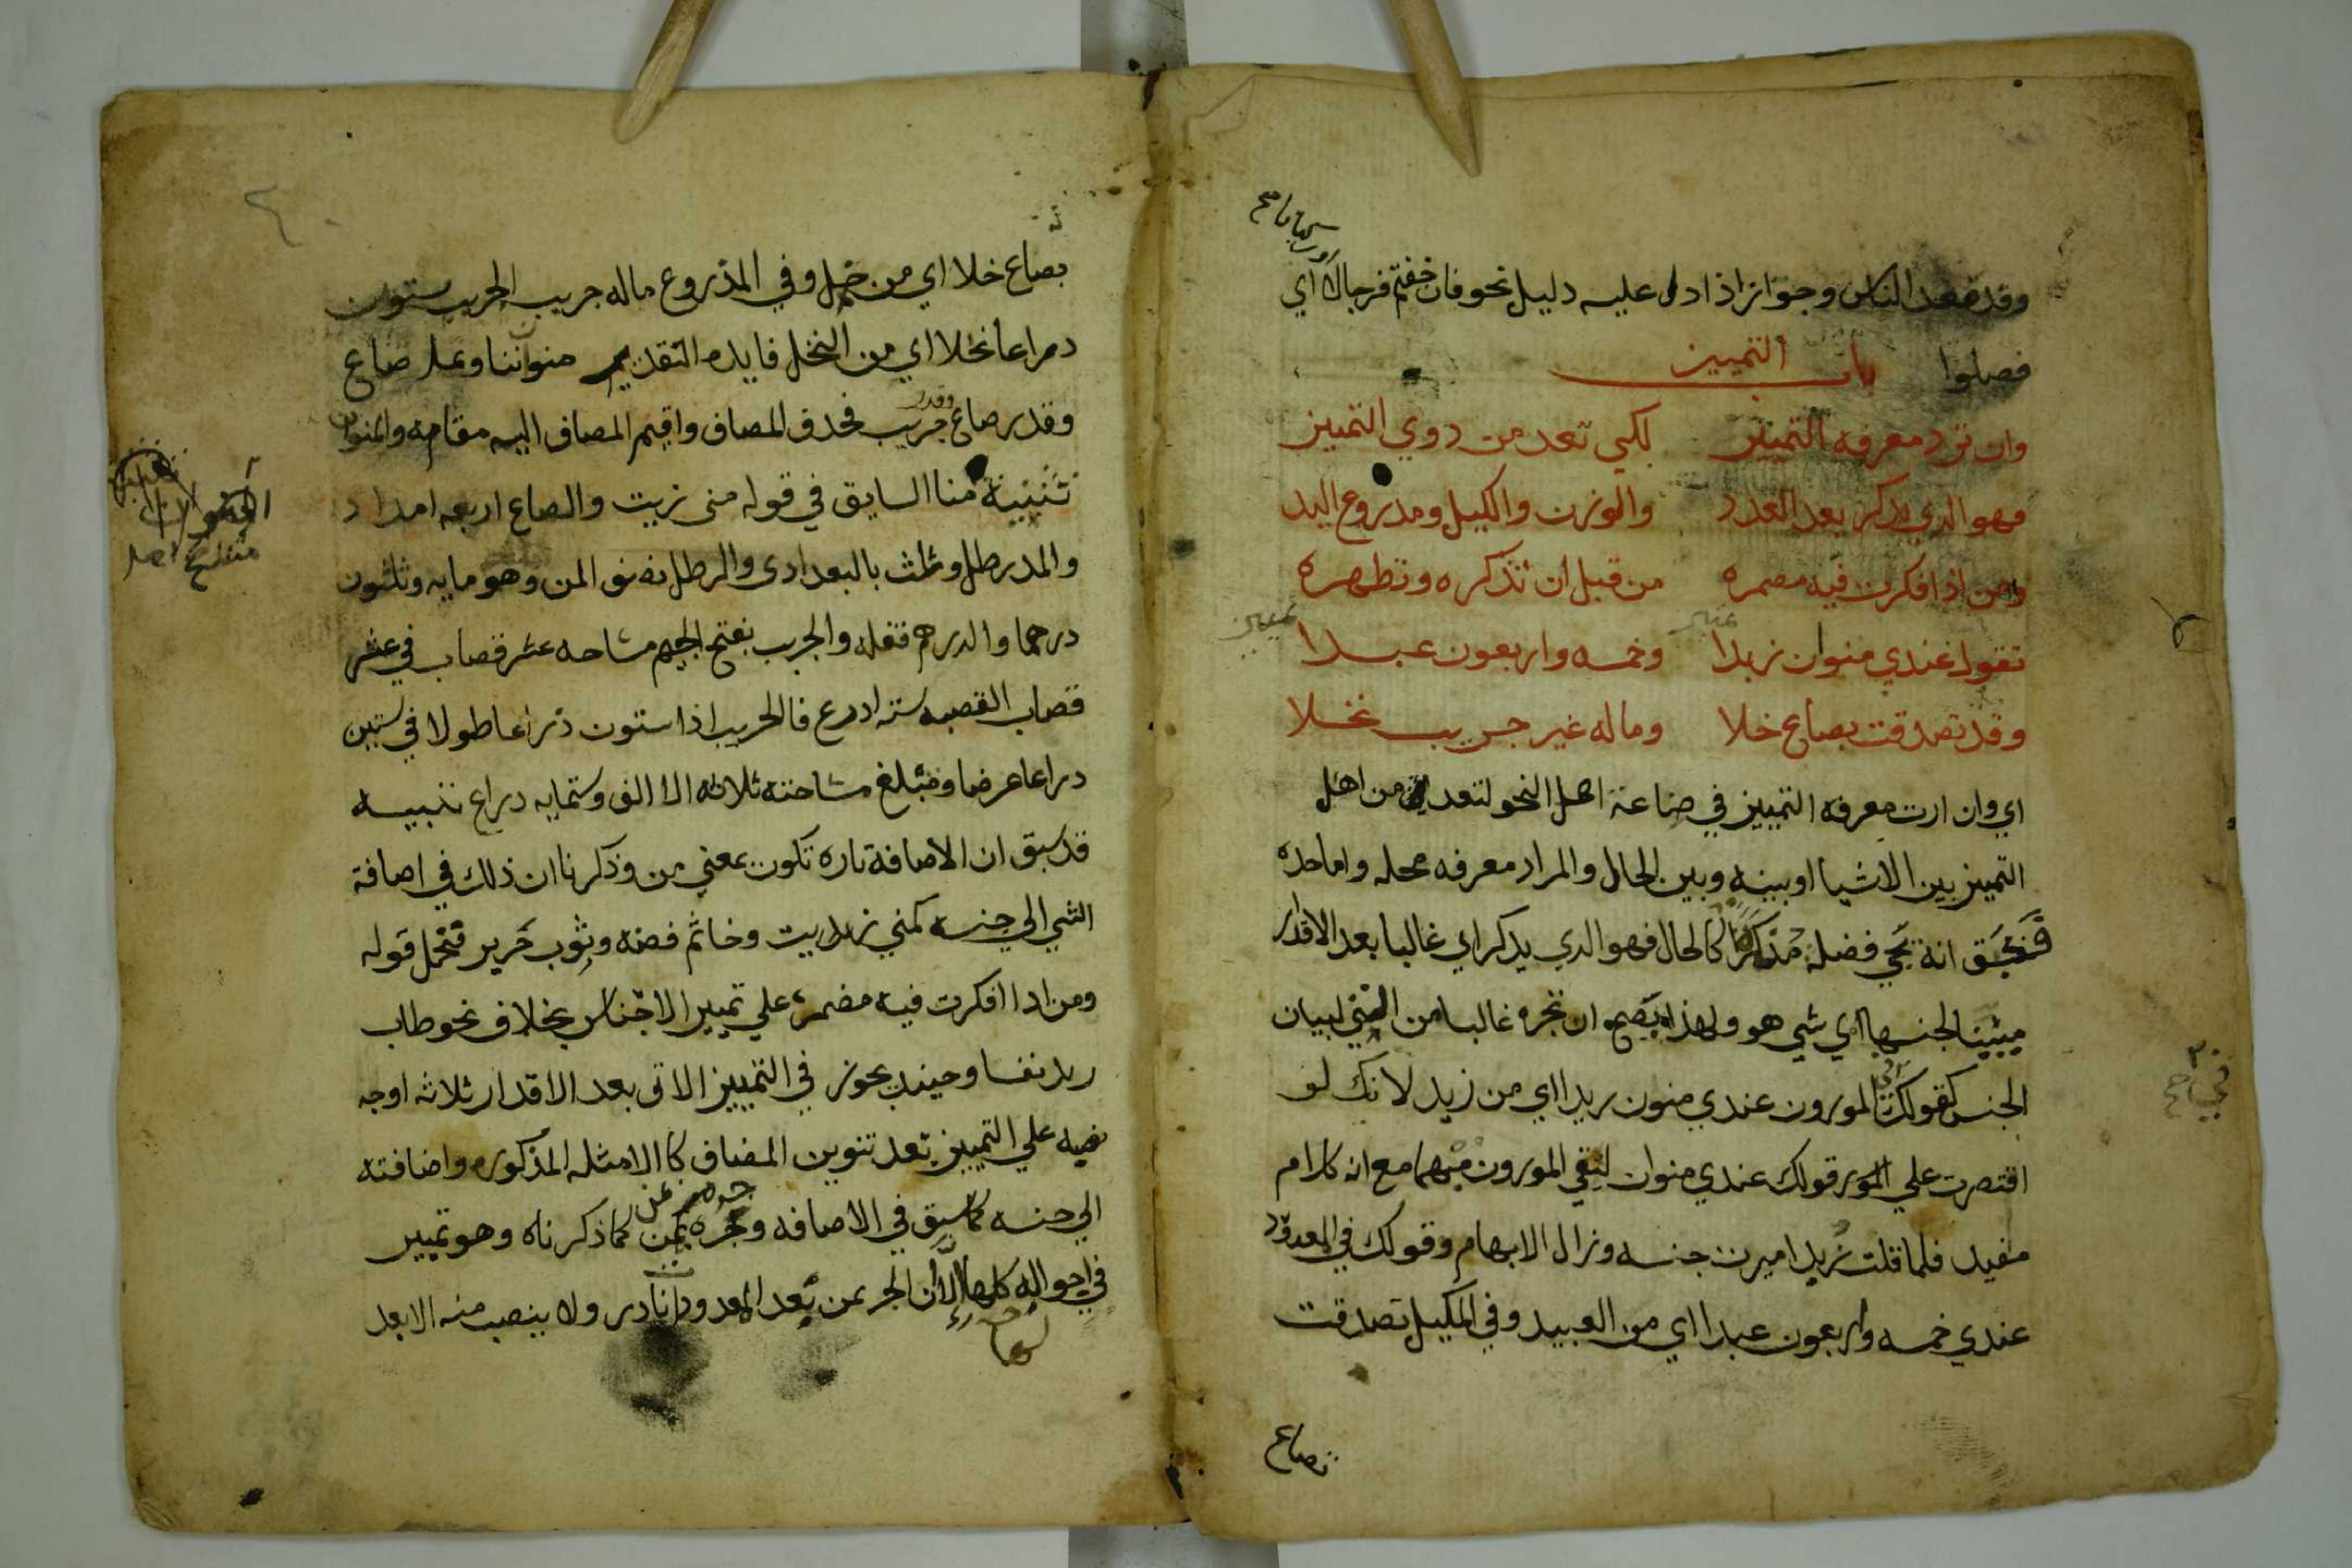 وقد قعد الناس وجوازا اذا دل عليه دليل نحو فان خفتم فرجالا اي
او ركبانا صح
فصلوا باب التمييز
وان ترد معرفه التمييز لكي تعد من ذوي التمييز
فهو الدي يدكر بعد العدد والوزن والكيل ومدروع اليد
ومن اذا فكرت فيه مضمره من قبل ان تذكره وتظهره
تقول عندي منوان زبدا وخمسه واربعون عبدا
وقد تصدقت بصاع خلا وماله غير جريب نخلا
اي وان اردت معرفه التمييز في صناعة اهل النحو لتعد من اهل
التمييز بين الاشيا او بينه وبين الحال والمراد معرفه محله واما حده
انه فضلة كالحال فهو الدي يدكر اي غالبا بعد الاقدار
مبيّنا لجنسها اي شي هو ولهذا يصح ان تجره غالبا من التي لبيان
الجنس كقولك في الموزون عندي منون زبدا اي من زبد لانك لو
اقتصرت علي قولك عندي منوان لبقي الموزون مبهما مع انه كلام
مفيد فلما قلت زبدا ميزت جنسه وزال الابهام وقولك في المعدود
عندي خمسه واربعون عبدا اي من العبيد وفي المكيل تصدقت
بصاع
بصاع خلا اي من خل وفي المذروع ماله جريب الجريب ستون
دراعا نخلا اي من النخل فايده التقدير منوان وصاع
وقدر صاع وقدر جريب فحذف المضاف واقيم المضاف اليه مقامه والمنوان
تثنية منا السابق في قوله منى زيت والصاع اربعه امداد
والمد رطل وثلث بالبعدادى والرطل نصف المن وهو مايه وثلثون
درهما والدرهم قفله والجريب بفتح الجيم مساحه عشر قصاب في عشر
قصاب القصبه ستة اذرع فالجريب اذا ستون ذراعا طولا في ستين
دراعا عرضا ومبلغ مساحته ثلاثه الا الف وستمايه دراع تنبيه
قد سبق ان الاضافة تاره تكون بمعني من وذكرنا ان ذلك في اضافة
الشي الي جنسه كمني زيت وخاتم فضه وثوب حرير فتحمل قوله
ومن اذا افكرت فيه مضمره علي تمييز الاجناس بخلاف نحو طاب
زيد نفسا وحينيد يجوز في التمييز الاتي بعد الاقدار ثلاثه اوجه
نصبه علي التمييز بعد تنوين المضاف كالامثله المذكوره واضافته
الي جنسه كما سبق في الاضافه وجره بمن كما ذكرناه وهو تمييز
في احواله كلها الا ان الجر بمن بعد المعدود نادر ولا ينصب منه الا بعد